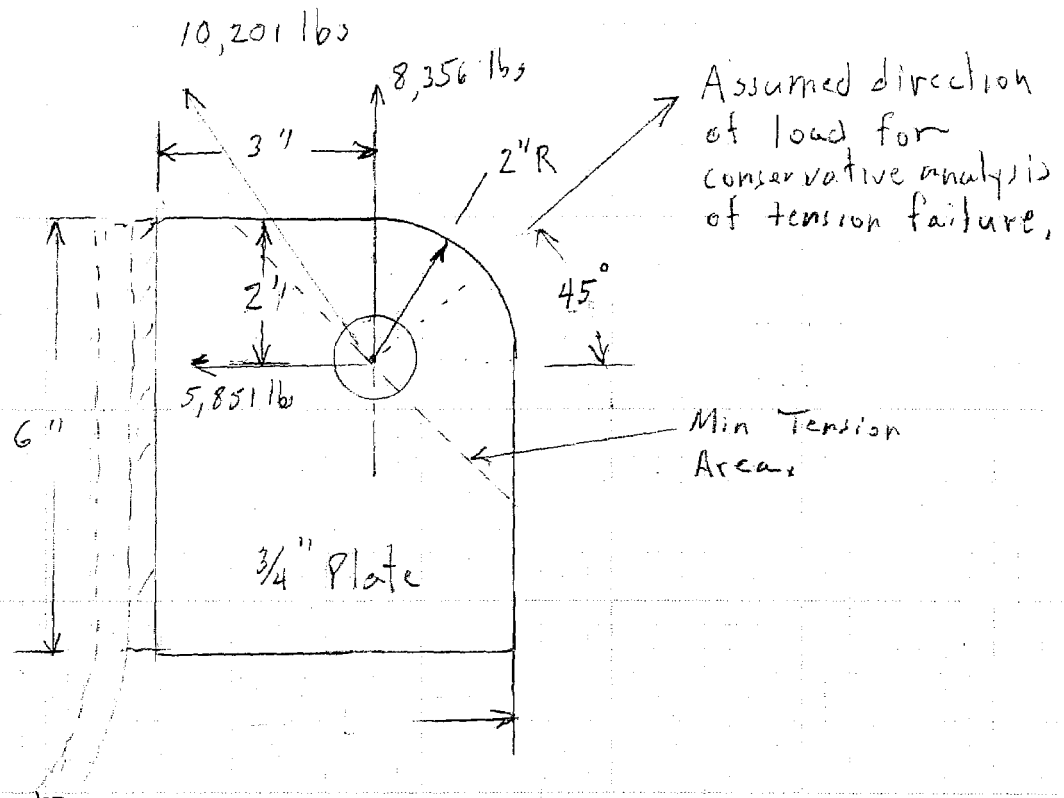 10,201 lbs
8,356 lbs
3"
2"R
Assumed direction
of load for
conservative analysis
of tension failure.
2"
45°
5,851 lbs
6"
Min Tension
Area.
3/4" Plate